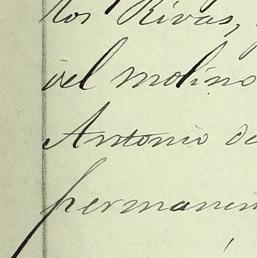 los Rivas,
del molino
Antonio de
permanen